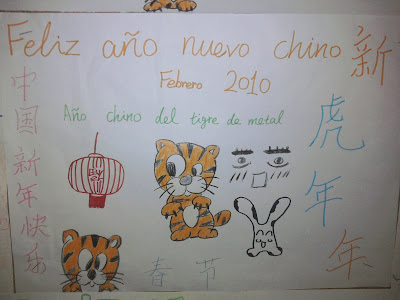 Feliz año nuevo chino
Febrero 2010
Año chino del tigre de metal
中国新年快乐
新虎年年
春节